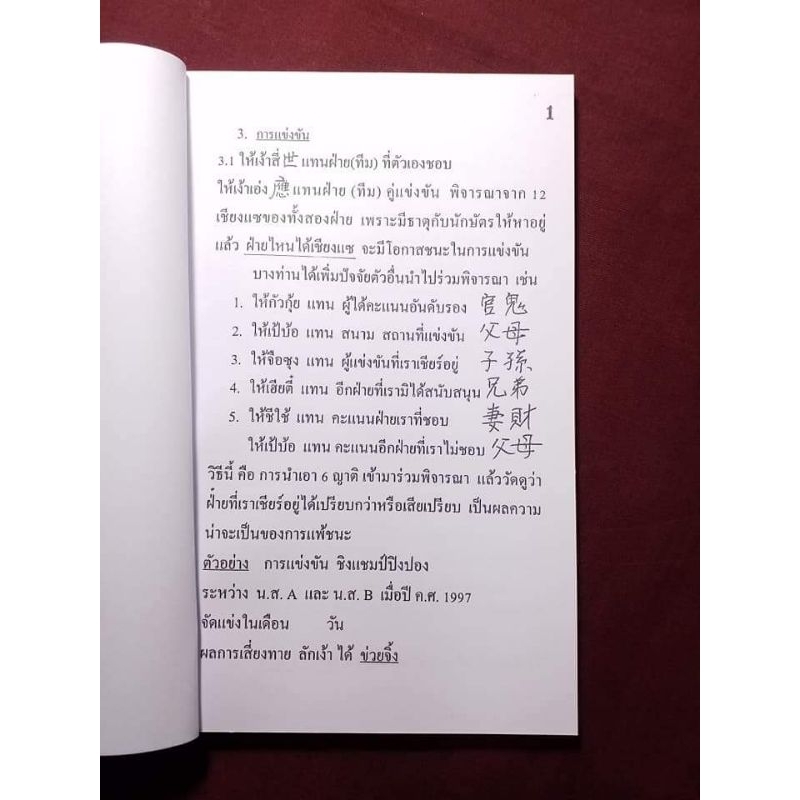 1
3. การแข่งขัน
3.1 ให้เง้าสี่ 世 แทนฝ่าย(ทีม) ที่ตัวเองชอบ
ให้เง้าเอ่ง 應 แทนฝ่าย (ทีม) คู่แข่งขัน พิจารณาจาก 12
เชียงแซของทั้งสองฝ่าย เพราะมีธาตุกับนักษัตรให้หาอยู่
แล้ว ฝ่ายไหนได้เชียงแซ จะมีโอกาสชนะในการแข่งขัน
บางท่านได้เพิ่มปัจจัยตัวอื่นนำไปร่วมพิจารณา เช่น
1. ให้กัวกุ้ย แทน ผู้ได้คะแนนอันดับรอง 官鬼
2. ให้เป้บ้อ แทน สนาม สถานที่แข่งขัน 父母
3. ให้จือซุง แทน ผู้แข่งขันที่เราเชียร์อยู่ 子孫
4. ให้เฮียตี๋ แทน อีกฝ่ายที่เรามิได้สนับสนุน 兄弟
5. ให้ชีใช้ แทน คะแนนฝ่ายเราที่ชอบ 妻財
ให้เป้บ้อ แทน คะแนนอีกฝ่ายที่เราไม่ชอบ 父母
วิธีนี้ คือ การนำเอา 6 ญาติ เข้ามาร่วมพิจารณา แล้ววัดดูว่า
ฝ่ายที่เราเชียร์อยู่ได้เปรียบกว่าหรือเสียเปรียบ เป็นผลความ
น่าจะเป็นของการแพ้ชนะ
ตัวอย่าง การแข่งขัน ชิงแชมป์ปิงปอง
ระหว่าง น.ส. A และ น.ส. B เมื่อปี ค.ศ. 1997
จัดแข่งในเดือน วัน
ผลการเสี่ยงทาย ลักเง้า ได้ ข่วยจิ้ง